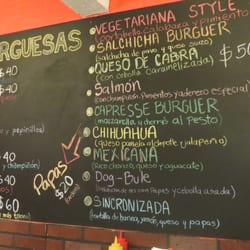 RGUESAS
$40
$40
y pepinillos)
$40
y champiñón)
$60
Papas
$20
VEGETARIANA STYLE
(portobello calabaza y pimiento
SALCHICHA BURGUER
(Salchicha de pavo y queso suizo)
QUESO DE CABRA
(con cebolla caramelizada)
Salmón
(con champiñón, Pimientos y aderezo especial)
CAPRESSE BURGUER
(mozzarella y domo al pesto)
CHIHUAHUA
(queso panela al chipotle y jalapeño)
MEXICANA
queso y aguacate)
Dog-Bule
Papas y cebolla asada)
SINCRONIZADA
(tortilla de harina, jamón, queso y papas)
$50